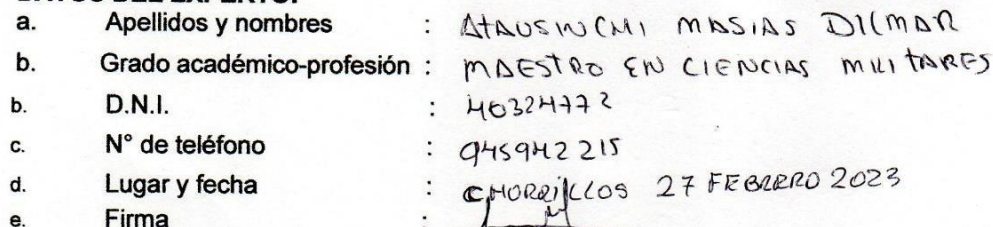 DATOS DEL EXPERTO:
a. Apellidos y nombres : ATAUSINCHI MASIAS DILMAR
b. Grado académico-profesión : MAESTRO EN CIENCIAS MILITARES
b. D.N.I. : 40324772
c. N° de teléfono : 945942215
d. Lugar y fecha : CHORRILLOS 27 FEBRERO 2023
e. Firma :